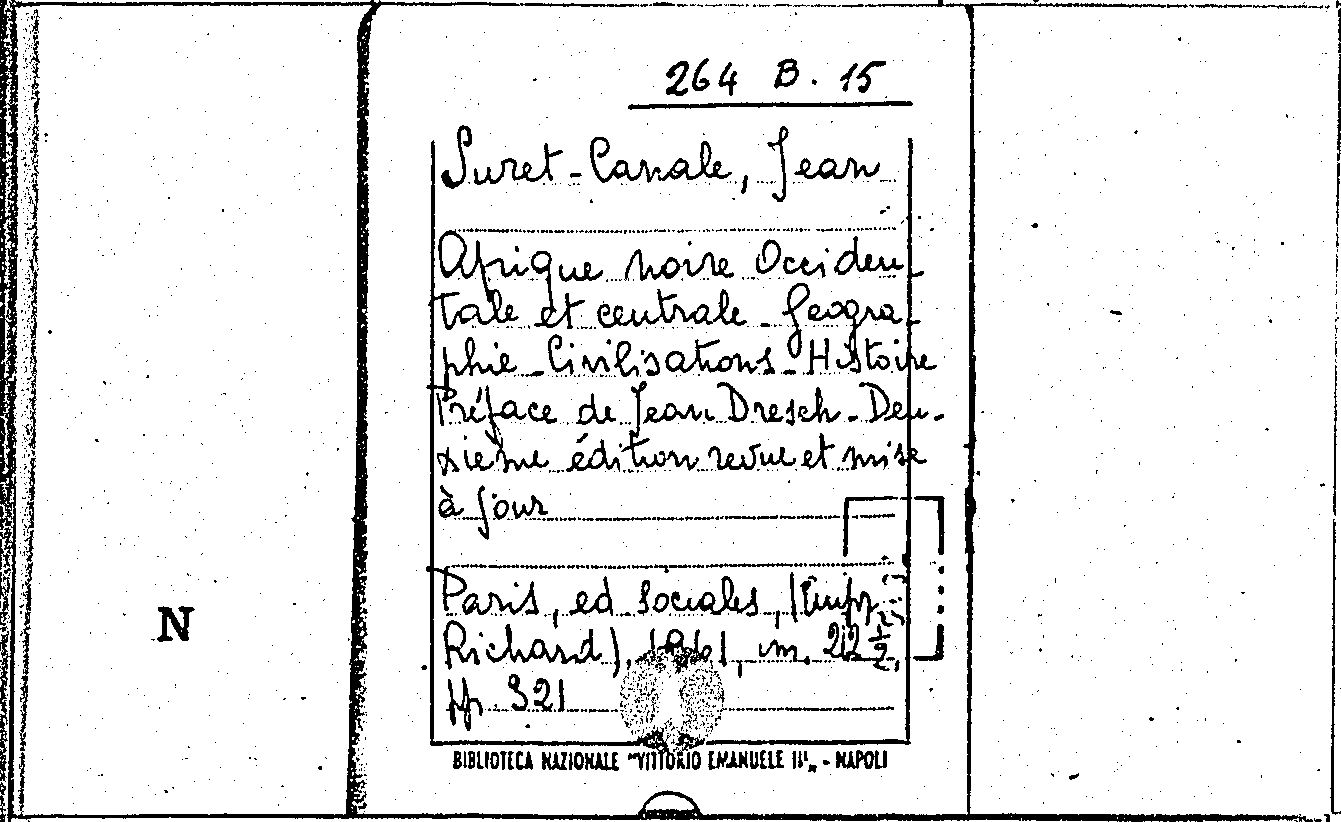 264 B. 15
Suret-Canale, Jean
Afrique noire Occiden-
tale et centrale - Geogra-
phie - Civilisations - Histoire
Préface de Jean Dresch - Deu-
xieme édition revue et mise
à jour
N
Paris, ed sociales, (Impr.
Richard), 1961, in. 22 1/2,
pp. 321
BIBLIOTECA NAZIONALE "VITTORIO EMANUELE III" - NAPOLI